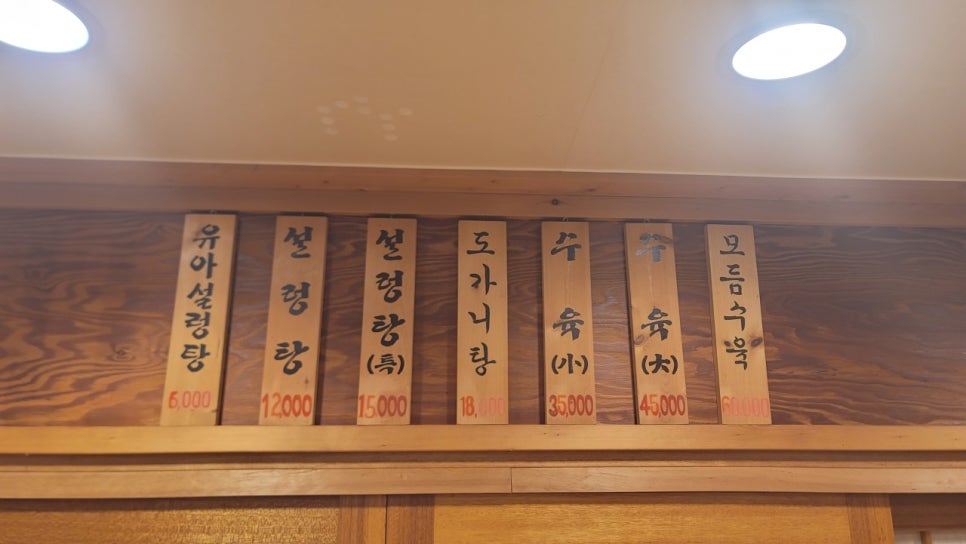 유아설렁탕
6,000
설렁탕
12,000
설렁탕
(특)
15,000
도가니탕
18,000
수육
(小)
35,000
수육
(大)
45,000
모듬수육
60,000